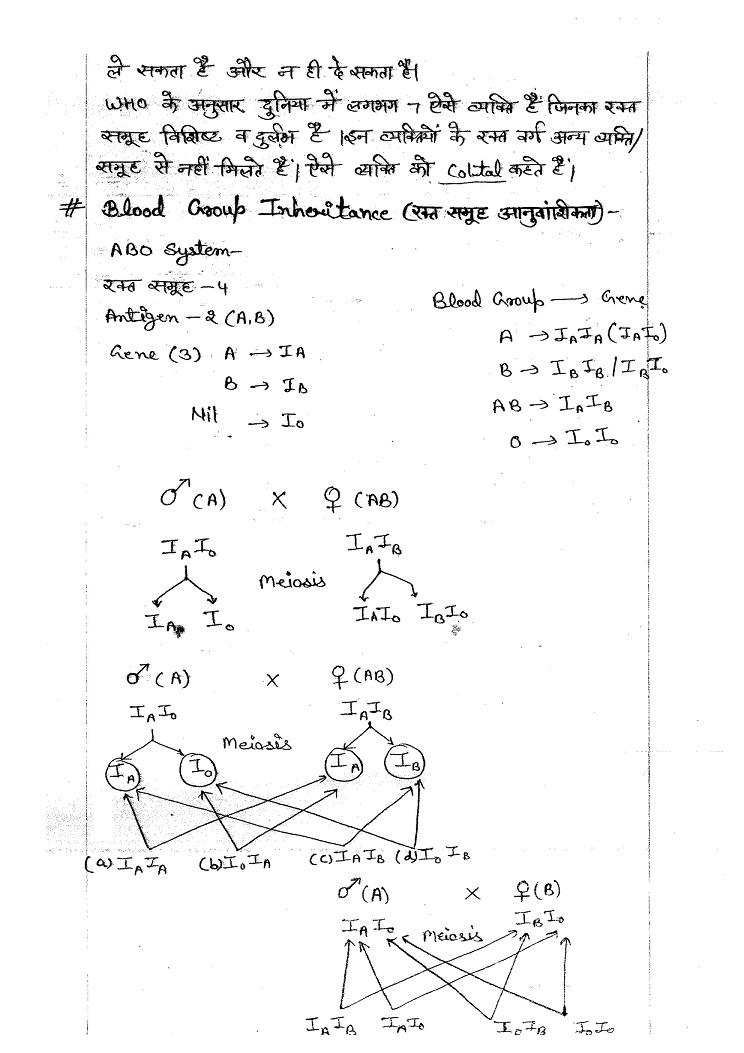 ले सकता है और न ही दे सकता है।
WHO के अनुसार दुनिया में लगभग 7 ऐसे व्यक्ति हैं जिनका रक्त
समूह विशिष्ट व दुर्लभ है। इन व्यक्तियों के रक्त वर्ग अन्य व्यक्ति/
समूह से नहीं मिलते हैं। ऐसे व्यक्ति को Colital कहते हैं।
# Blood Group Inheritance (रक्त समूह आनुवांशिकता)-
ABO System-
रक्त समूह - 4
Antigen - 2 (A,B)
Gene (3) A → IA
B → IB
Nil → Io
Blood Group → Gene
A → IAIA (IAIo)
B → IBIB / IBIo
AB → IAIB
O → IoIo
♂ (A) × ♀ (AB)
IAIo IAIB
Meiosis
IA Io IAIo IBIo
♂ (A) × ♀ (AB)
IAIo IAIB
Meiosis
IA Io IA IB
(a) IAIA (b) IoIA (c) IAIB (d) IoIB
♂ (A) × ♀ (B)
IAIo Meiosis IBIo
IAIB IAIo IoIB IoIo